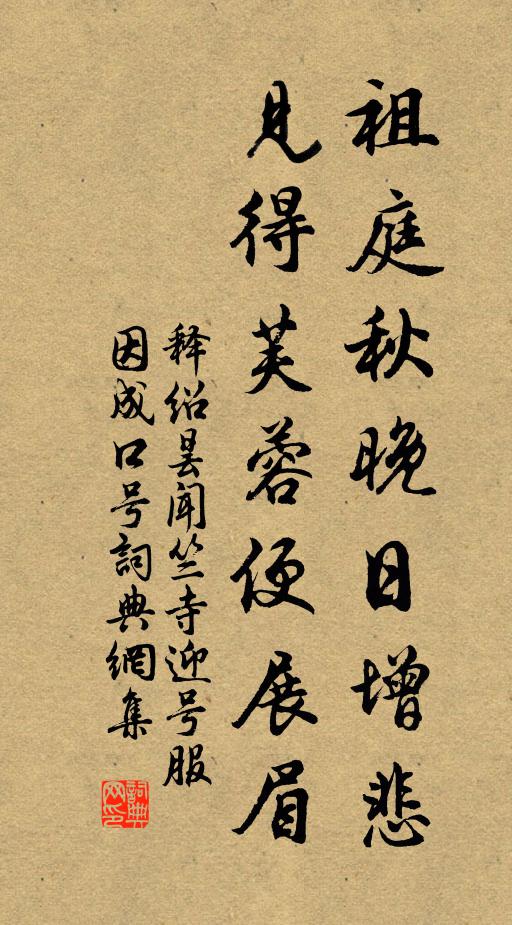 祖庭秋晚日增悲
见得芙蓉便展眉
释绍昙闻竺寺迎号服
因成口号詞典網集
詞典
网印